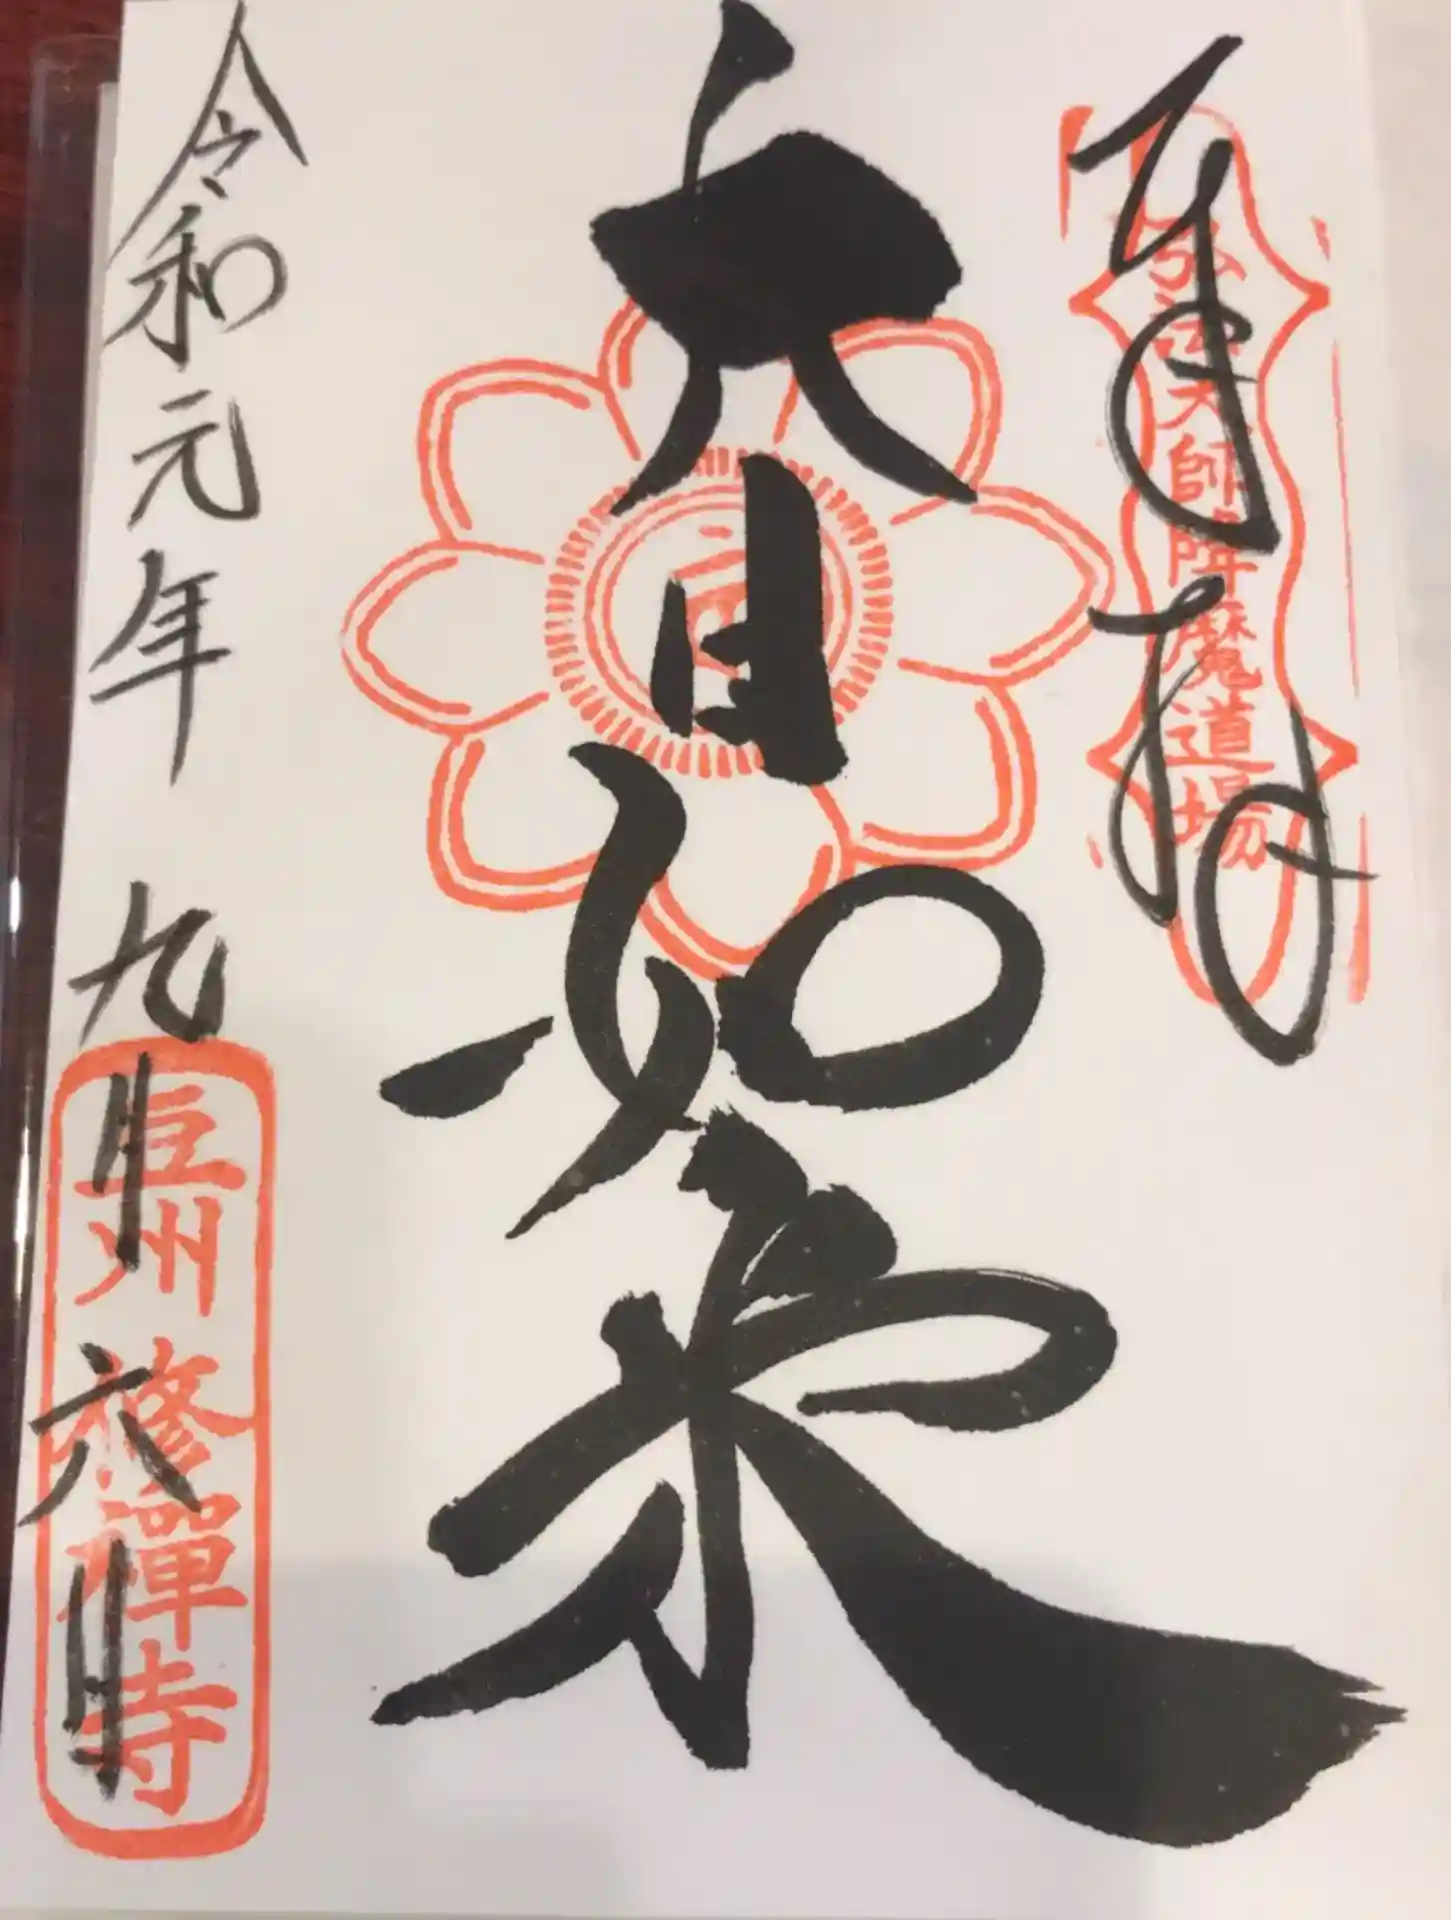 奉拝
弘法大師降魔道場
大日如来
令和元年 九月 六日
豆州 修禪寺